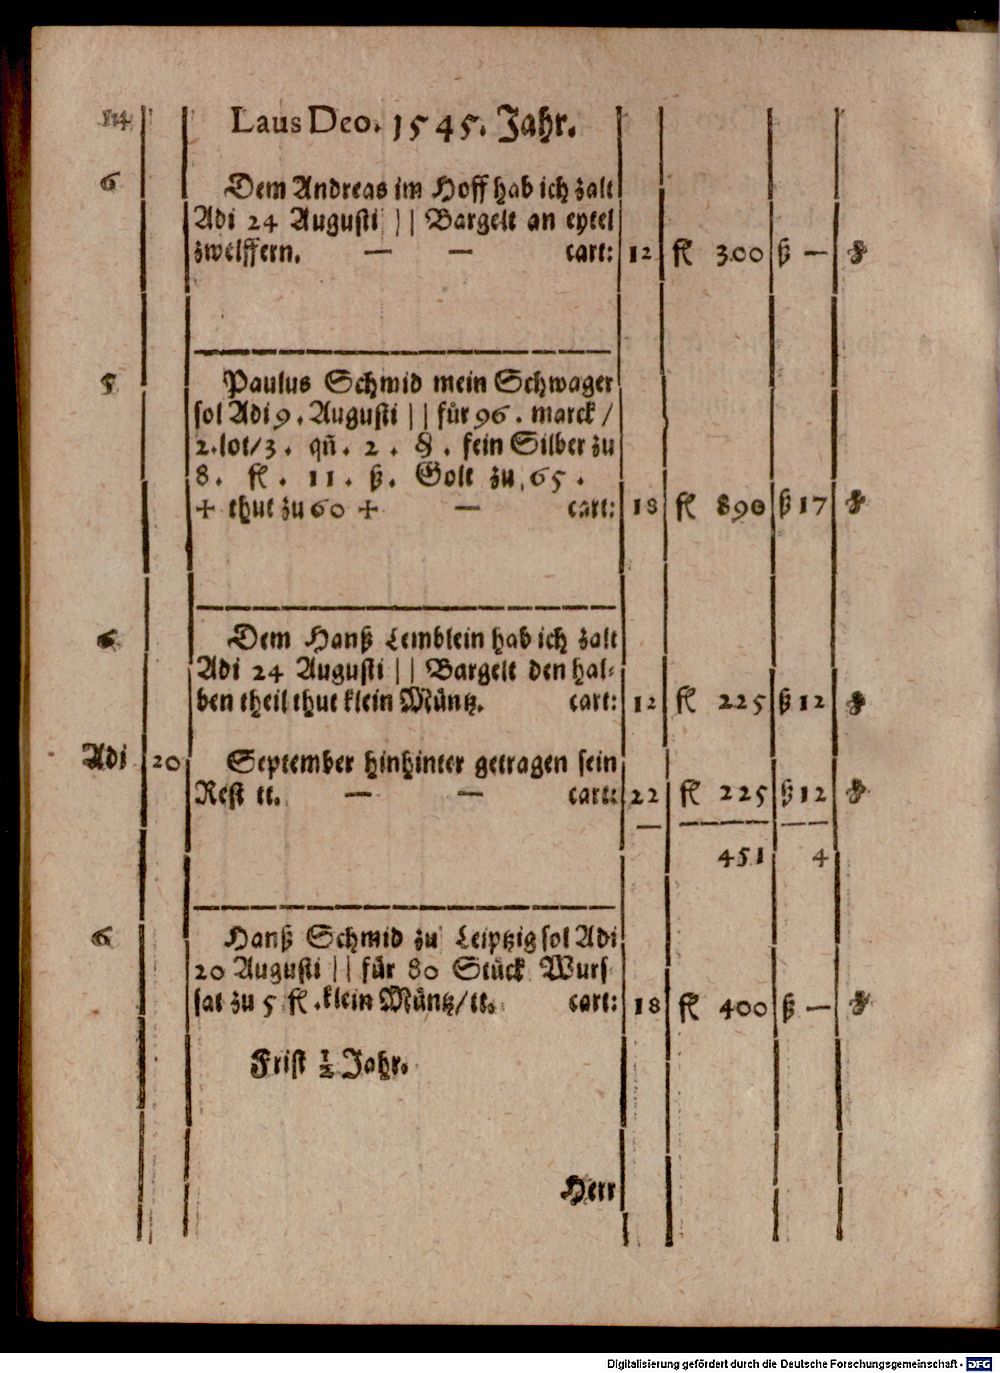 114 Laus Deo. 1545. Jahr.
6 Dem Andreas im Hoff hab ich zalt
Adi 24 Augusti || Bargelt an eytel
zwelffern. — — cart: 12 fl 300 ß — ₰
5 Paulus Schmid mein Schwager
sol Adi 9. Augusti || für 96. marck /
2. lot/3. qñ. 2. §. fein Silber zu
8. fl. 11. ß. Golt zu 65.
+ thut zu 60 + — cart: 18 fl 890 ß 17 ₰
6 Dem Hanß Lemblein hab ich zalt
Adi 24 Augusti || Bargelt den hal-
ben theil thut klein Müntz. cart: 12 fl 225 ß 12 ₰
Adi 20 September hinhinter getragen sein
Rest tt. — — cart: 22 fl 225 ß 12 ₰
451 4
6 Hanß Schmid zu Leiptzig sol Adi
20 Augusti || für 80 Stück Wurs
sat zu 5 fl. klein Müntz/tt. cart: 18 fl 400 ß — ₰
Frist ½ Jahr.
Herr
Digitalisierung gefördert durch die Deutsche Forschungsgemeinschaft - DFG